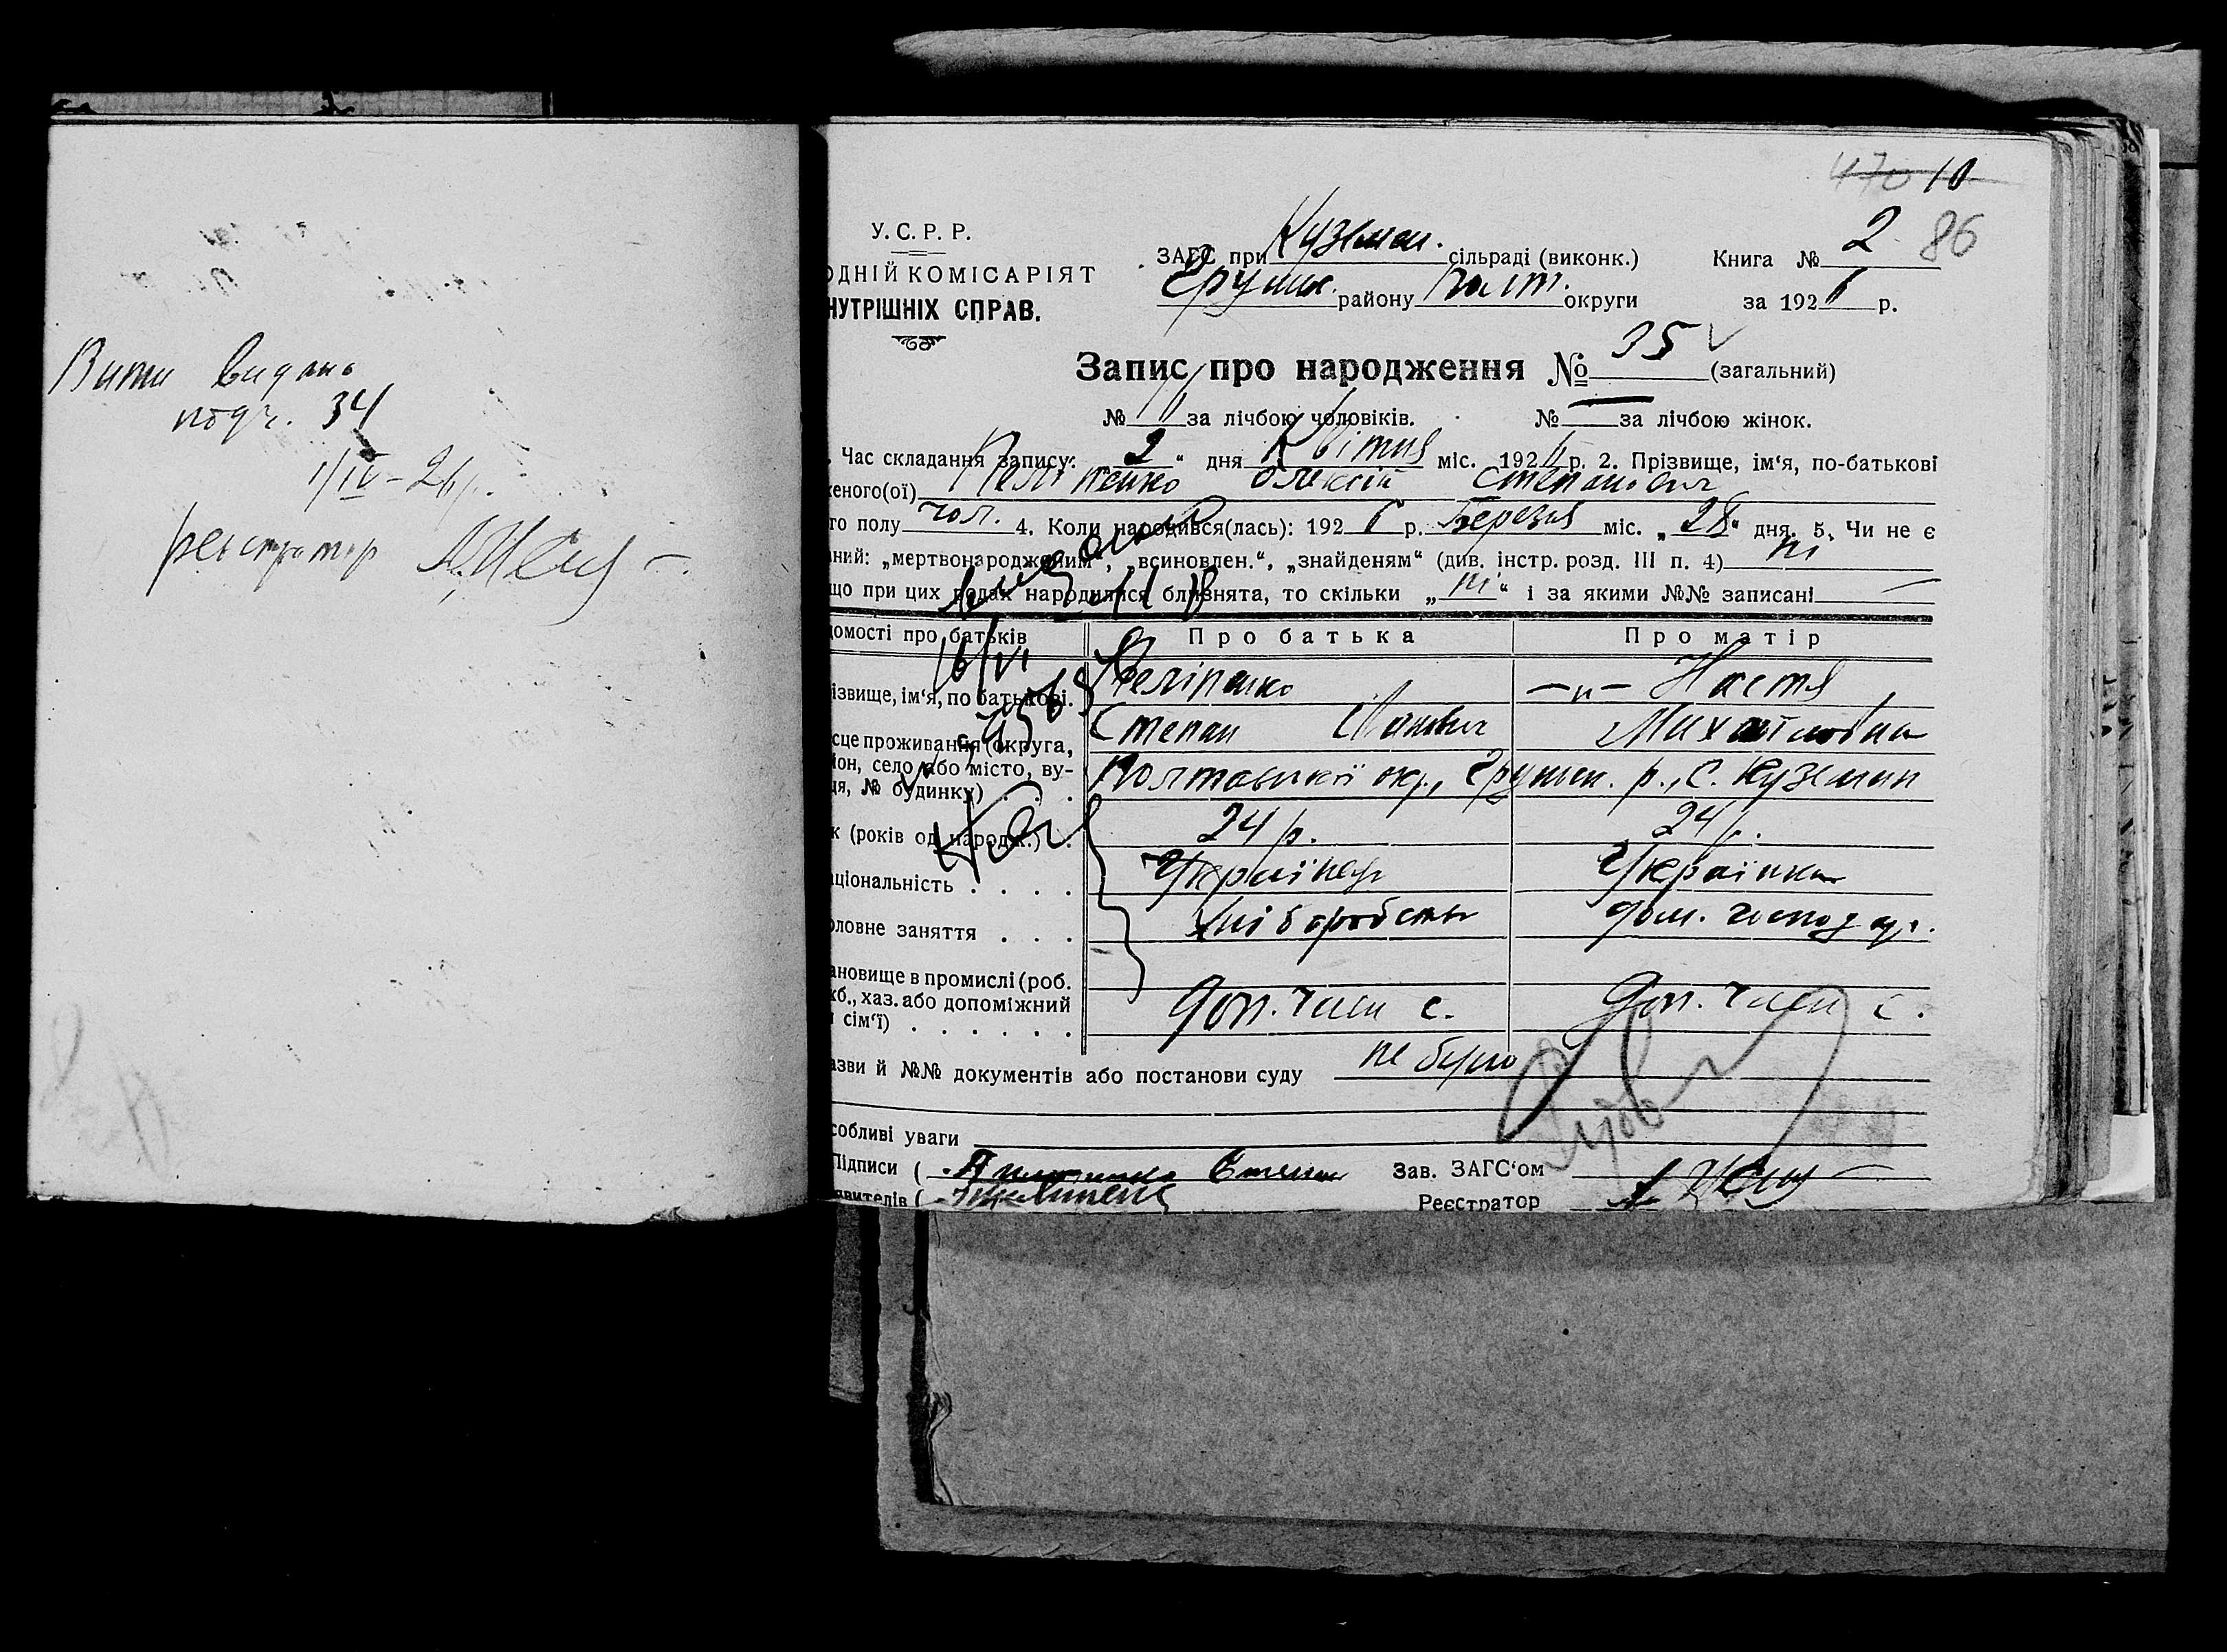 Витяг видано
під ч. 34
1/IV-26 р.
реєстратор
470 10
86
У. С. Р. Р.
ОДНІЙ КОМІСАРІЯТ
НУТРІШНІХ СПРАВ.
ЗАГС при Куземен. сільраді (виконк.) Книга № 2
Грунс. району Полт. округи за 1926 р.
Запис про народження № 35 (загальний)
№ 11 за лічбою чоловіків. № — за лічбою жінок.
. Час складання запису: „2“ дня Квітня міс. 1926 р. 2. Прізвище, ім‘я, по-батькові
еного(ої) Олексій Степанович
го полу чол. 4. Коли народився(лась): 1926 р. Березня міс. „28“ дня. 5. Чи не є
ний: „мертвонародженим“, „всиновлен.“, „знайденям“ (див. інстр. розд. III п. 4) ні
що при цих родах народилися близнята, то скільки „ні“ і за якими №№ записані —
домості про батьків Про батька Про матір
ізвище, ім‘я, по батькові. Пилипенко —„— Настя
Степан Михайловна
сце проживання (округа,
он, село або місто, ву-
ця, № будинку) . . . Полтавської окр., Грунс. р., с. Куземин
к (років од народж.) . 24 р. 24 р.
ціональність . . . . Українець Українка
оловне заняття . . . хліборобство дом. господар.
ановище в промислі (роб.
жб., хаз. або допоміжний
сім‘ї) . . . . . . доп. член с. доп. член с.
азви й №№ документів або постанови суду не було
собливі уваги
Підписи ( Зав. ЗАГС‘ом
явителів ( Реєстратор